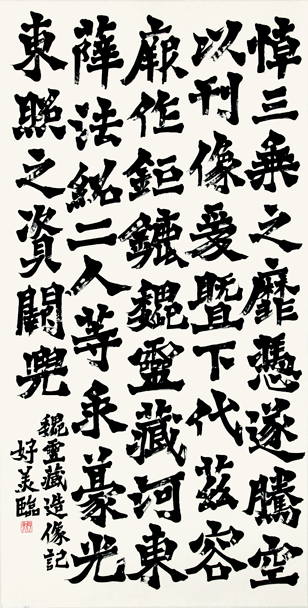 悼三乗之靡憑遂騰空
以刊像爰曁下代茲容
厥作鉅鏕魏霊藏河東
薛法紹二人等求豪光
東照之資闕兜
魏霊藏造像記
好美臨